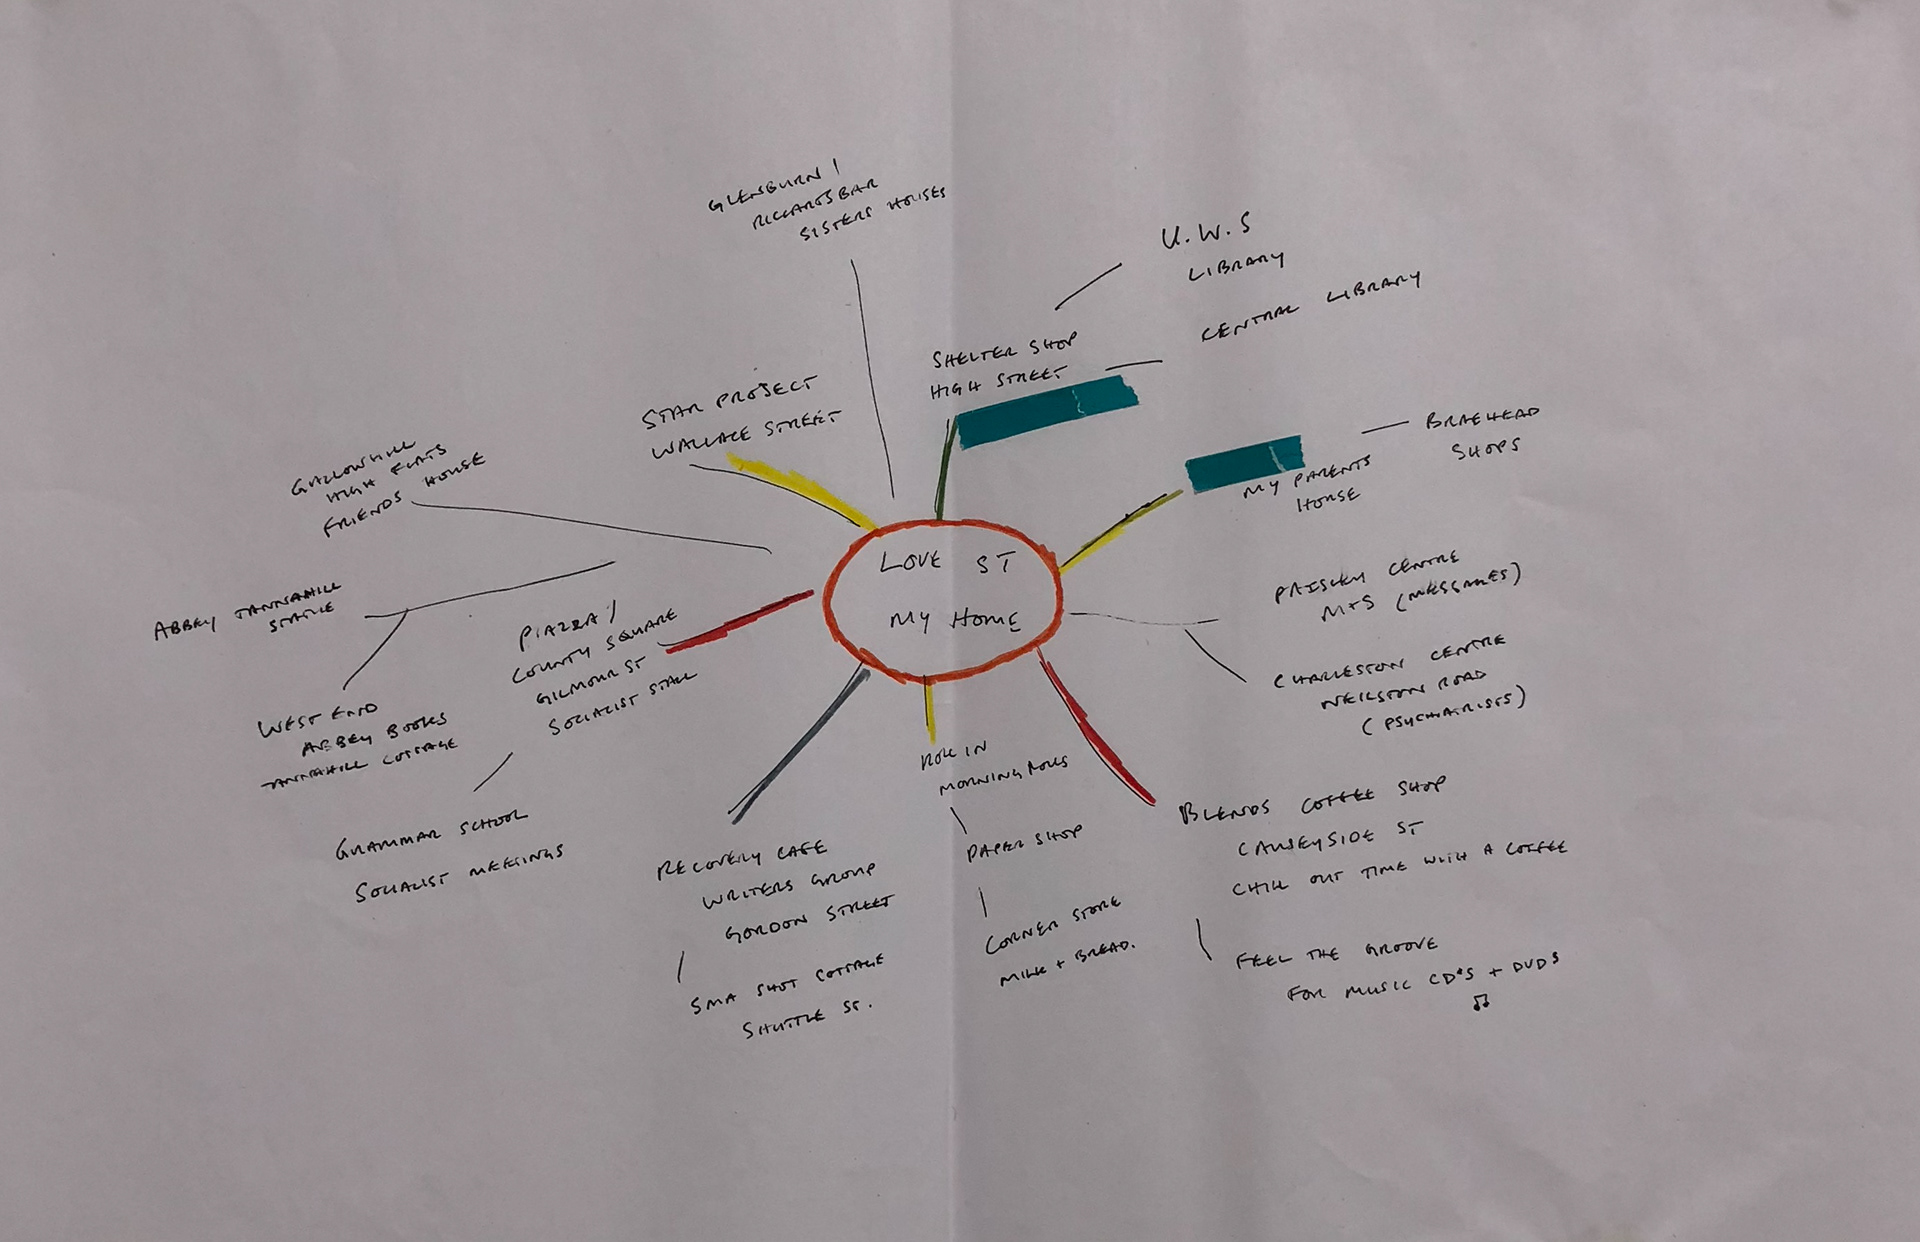 GLENBURN /
RICCARTSBAR
SISTERS HOUSES
U.W.S
LIBRARY
CENTRAL LIBRARY
SHELTER SHOP
HIGH STREET
STAR PROJECT
WALLACE STREET
BRAEHEAD
SHOPS
MY PARENTS
HOUSE
GALLOWHILL
HIGH FLATS
FRIENDS HOUSE
LOVE ST
MY HOME
PAISLEY CENTRE
M+S (MESSAGES)
CHARLESTON CENTRE
NEILSTON ROAD
(PSYCHIATRISTS)
ABBEY TANNAHILL
STATUE
PIAZZA /
COUNTY SQUARE
GILMOUR ST
SOCIALIST STALL
WEST END
ABBEY BOOKS
TANNAHILL COTTAGE
GRAMMAR SCHOOL
SOCIALIST MEETINGS
RECOVERY CAFE
WRITERS GROUP
GORDON STREET
SMA SHOT COTTAGE
SHUTTLE ST.
ROLL IN
MORNING ROLLS
PAPER SHOP
CORNER STORE
MILK + BREAD.
BLENDS COFFEE SHOP
CAUSEYSIDE ST
CHILL OUT TIME WITH A COFFEE
FEEL THE GROOVE
FOR MUSIC CD'S + DVDS